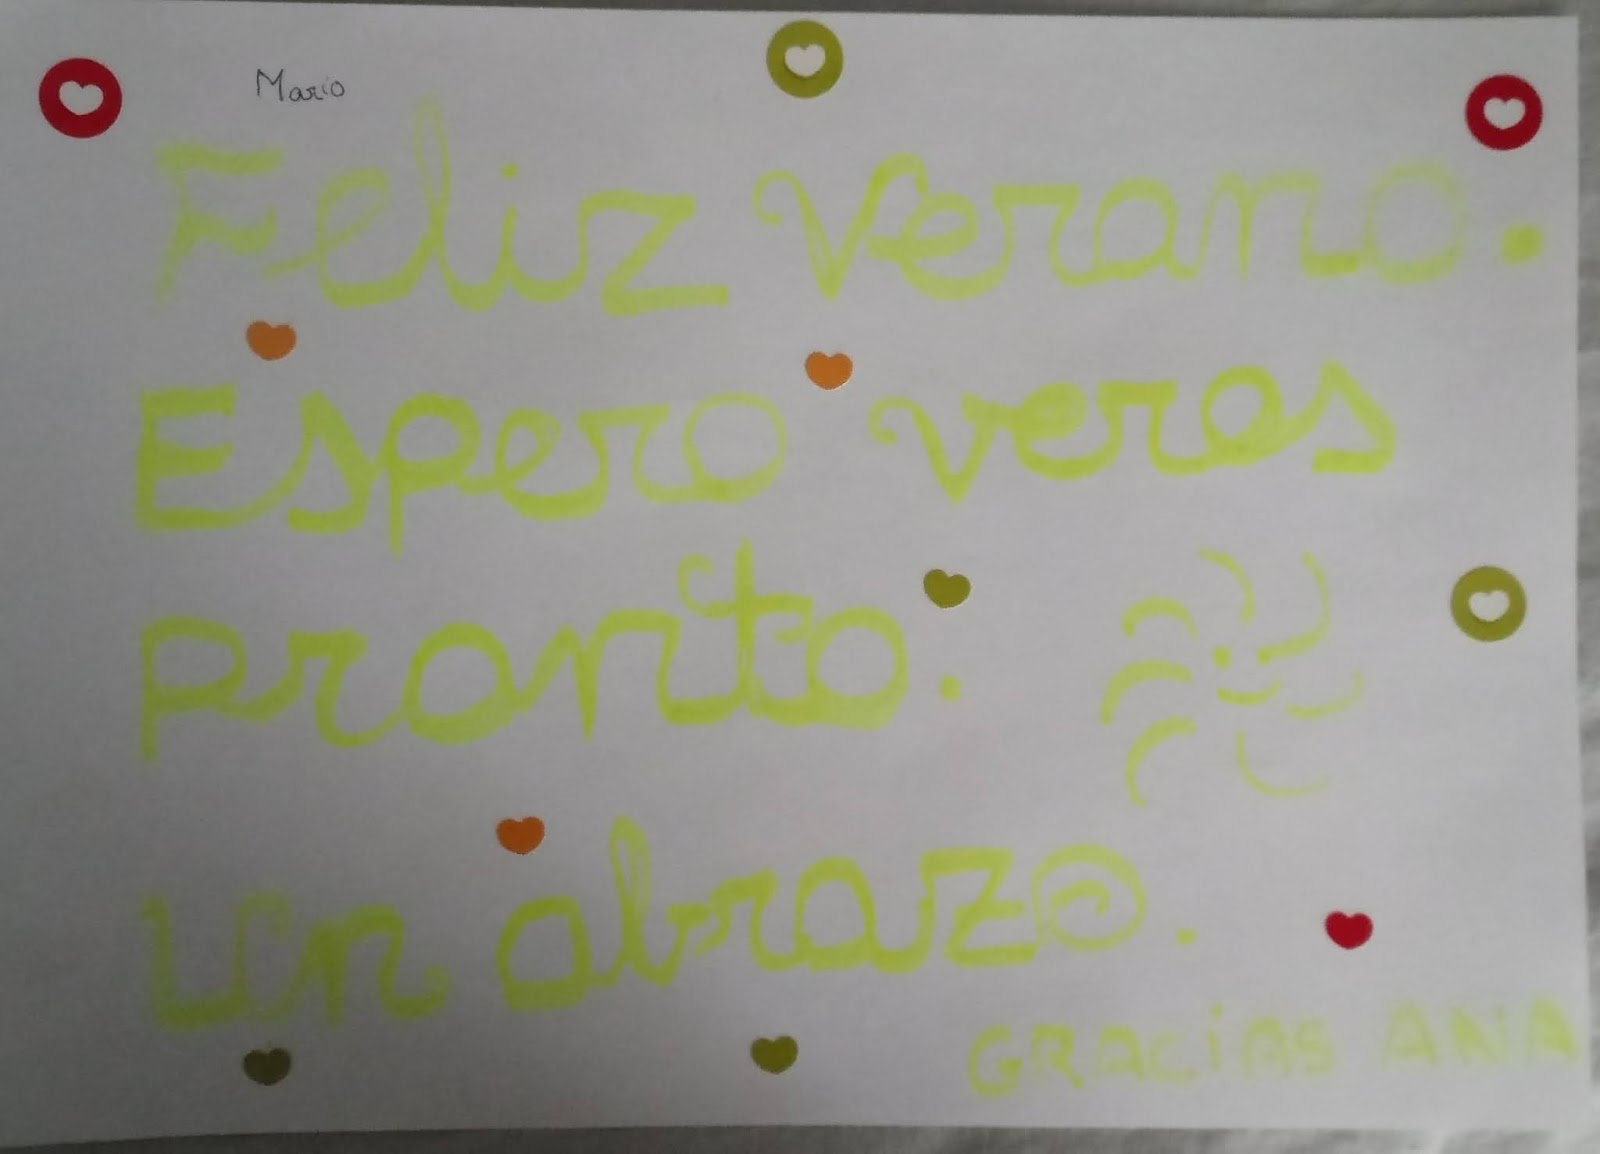 Mario
Feliz Verano.
Espero veros
pronto.
Un abrazo.
GRACiAS ANA